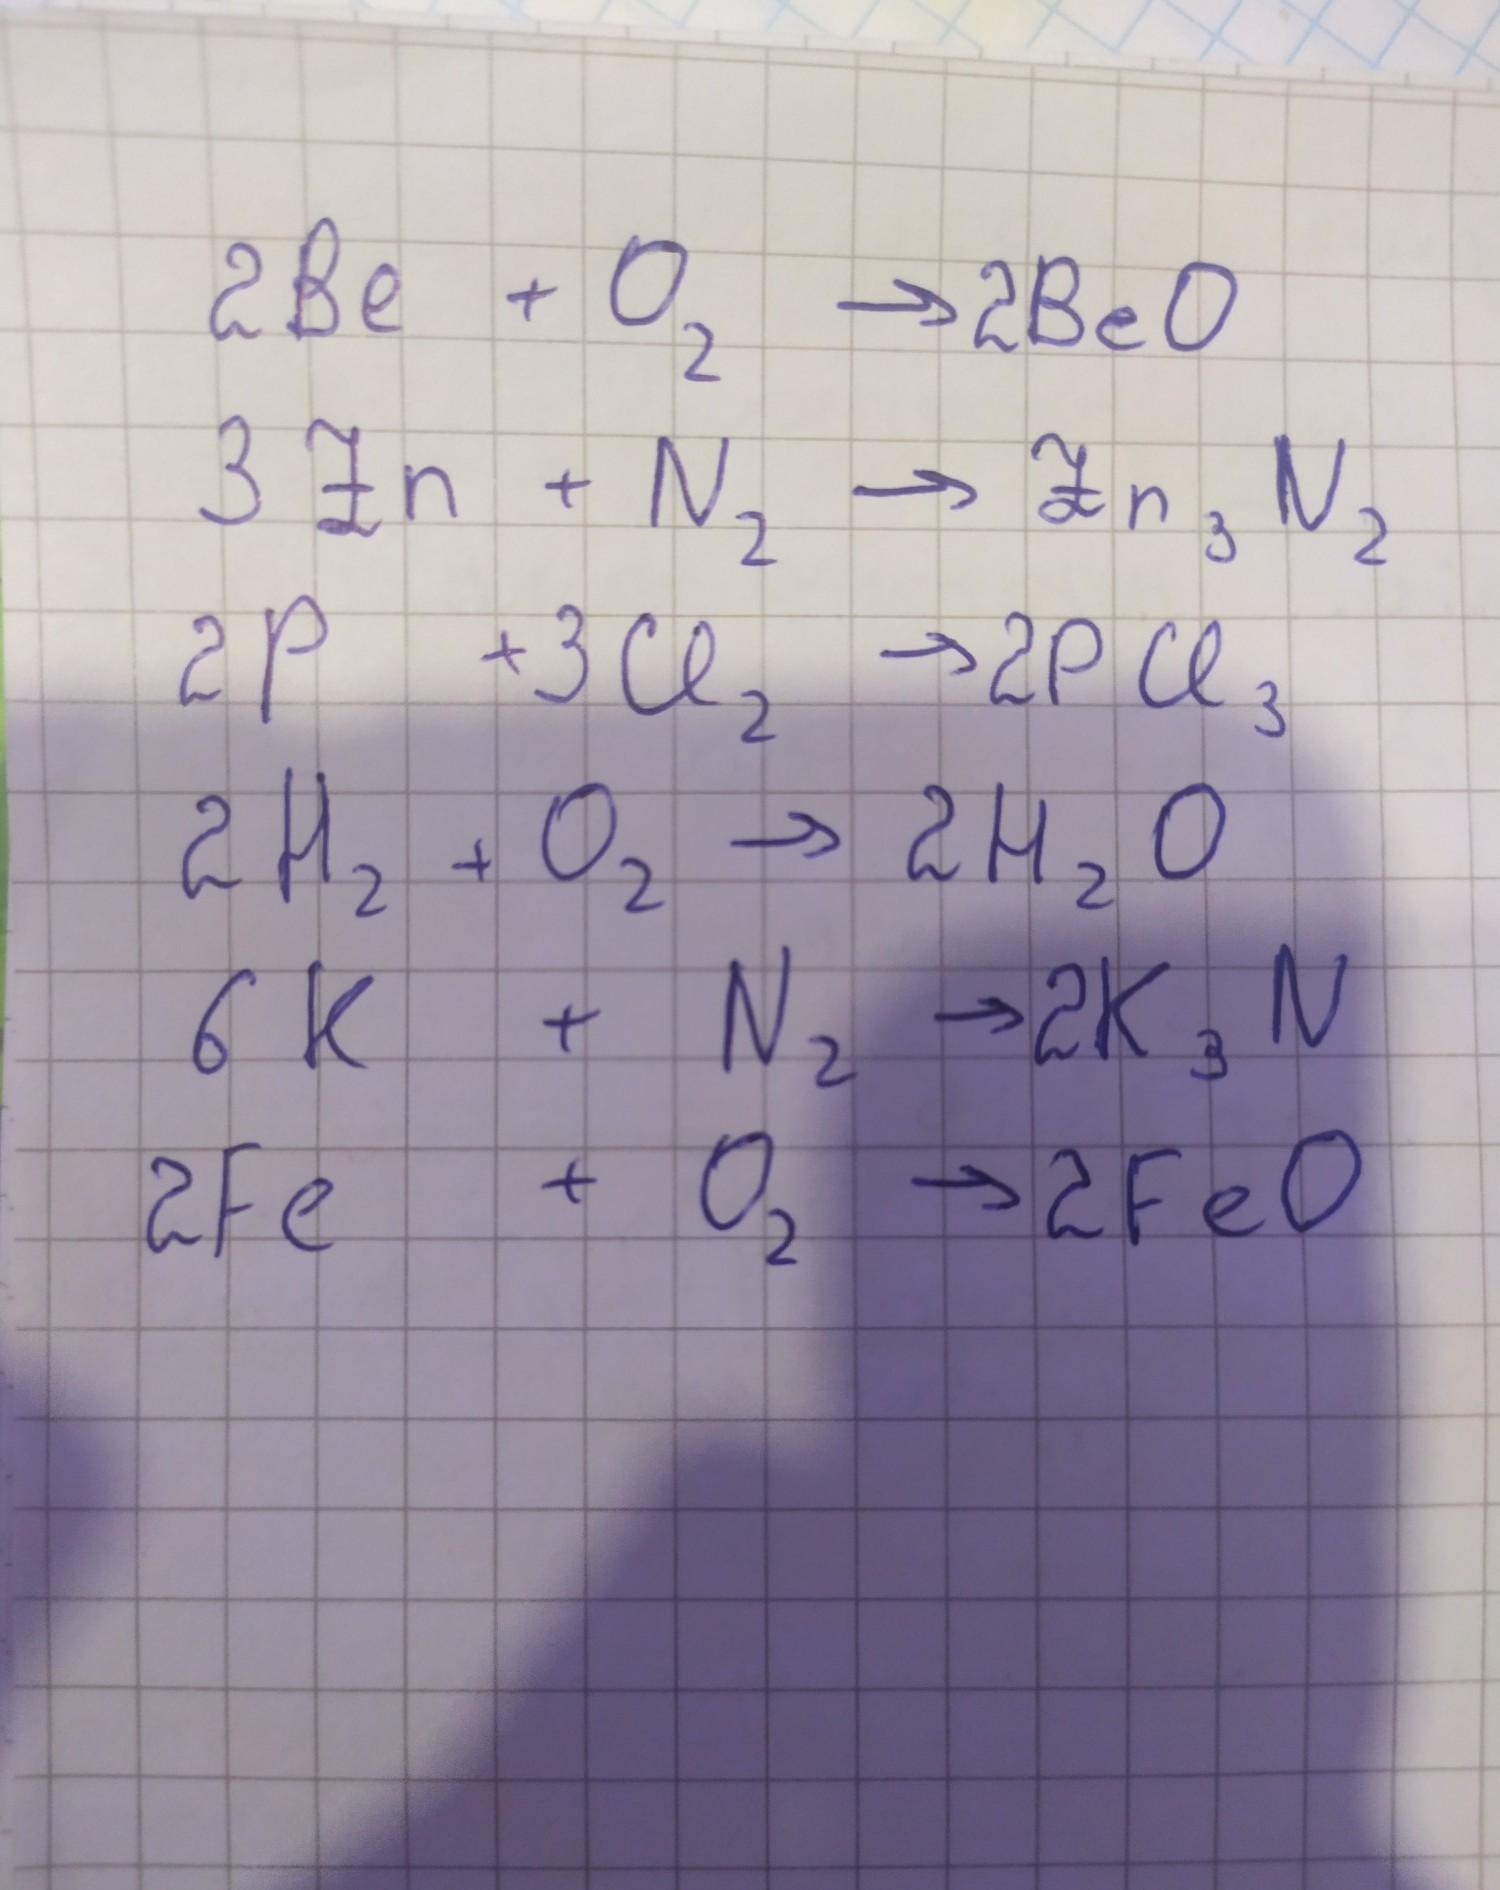 2Be + O₂ → 2BeO
3Zn + N₂ → Zn₃N₂
2P + 3Cl₂ → 2PCl₃
2H₂ + O₂ → 2H₂O
6K + N₂ → 2K₃N
2Fe + O₂ → 2FeO